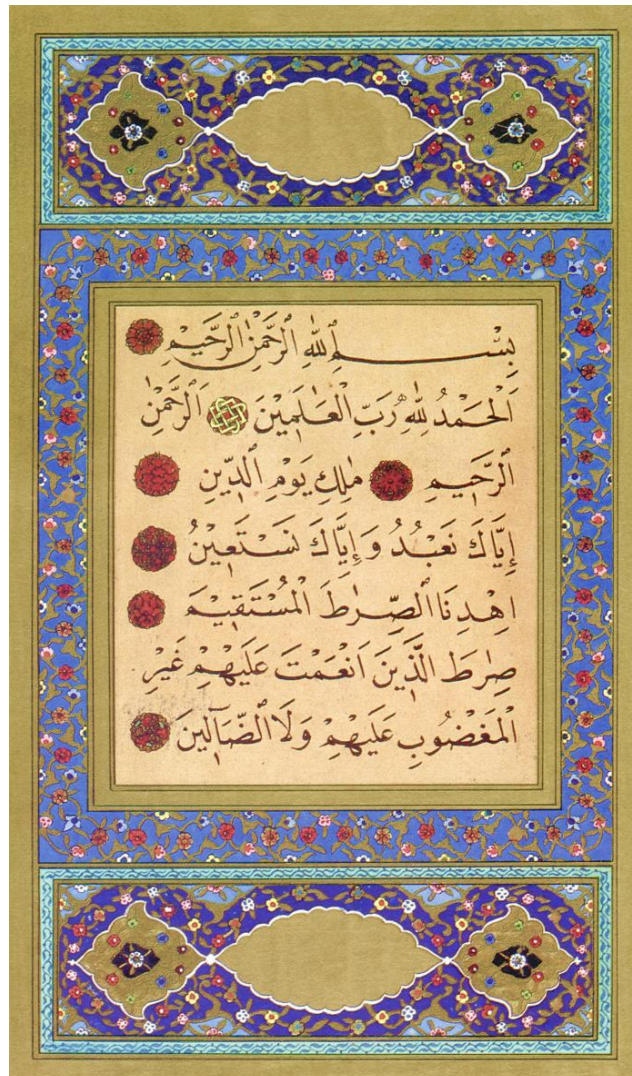 بِسْمِ ٱللّٰهِ ٱلرَّحْمٰنِ ٱلرَّحٖيمِ
اَلْحَمْدُ لِلّٰهِ رَبِّ ٱلْعَالَمٖينَ اَلرَّحْمٰنِ
ٱلرَّحٖيمِ مٰلِكِ يَوْمِ ٱلدّٖينِ
إِيَّاكَ نَعْبُدُ وَإِيَّاكَ نَسْتَعٖينُ
اِهْدِنَا ٱلصِّرٰطَ ٱلْمُسْتَقٖيمَ
صِرٰطَ ٱلَّذٖينَ اَنْعَمْتَ عَلَيْهِمْ غَيْرِ
ٱلْمَغْضُوبِ عَلَيْهِمْ وَلَا ٱلضَّٓالّٖينَ